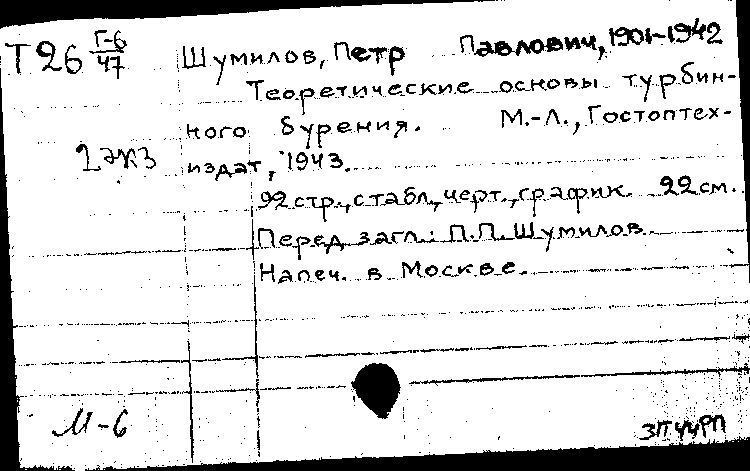 Т26 Г-6/47
Шумилов, Петр Павлович, 1901-1942
Теоретические основы турбин-
ного бурения. М.-Л., Гостоптех-
2 экз
издат, 1943.
92 стр., с табл., черт., график. 22 см.
Перед загл.: П.П. Шумилов.
Напеч. в Москве.
М-6